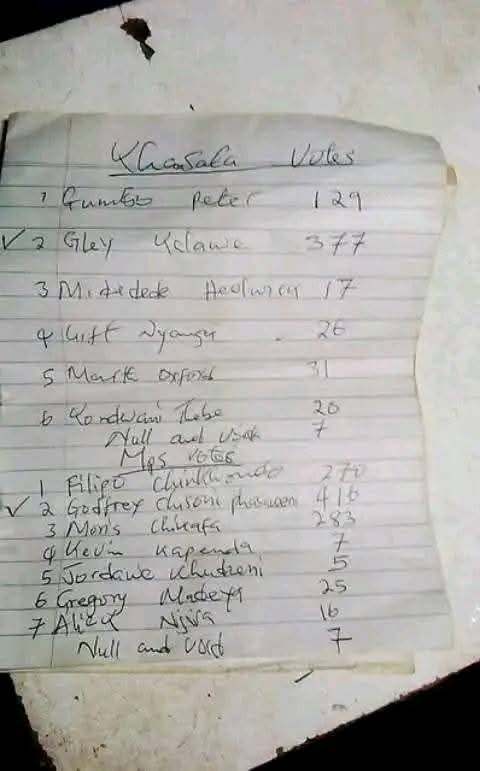 Khansala Votes
1 Gumbo Peter 129
✓ 2 Gley Kalawe 377
3 17
4 Gift Nyangu 26
5 Mark Oxford 31
6 Kondwani Thebe 20
Null and Void 7
Mps Votes
1 Filipo Chinkhondo 270
✓ 2 Godfrey Chisoni 416
3 Moris Chikafa 283
4 Kevin Kapenda 7
5 Jordawe Khudzeni 5
6 Gregory Mabeya 25
7 Njira 16
Null and Void 7